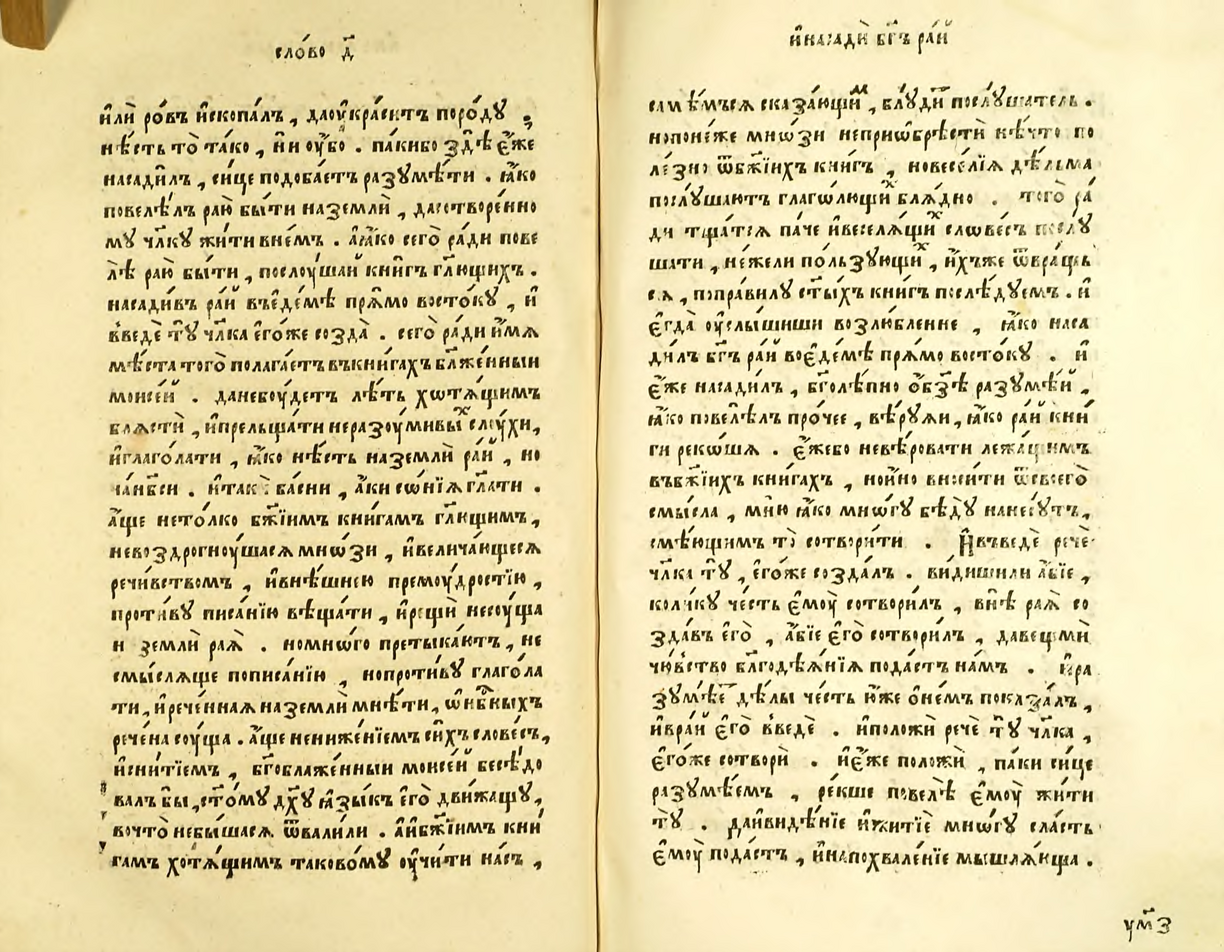 сло́во д҃
и҆лѝ ро́въ и҆скопа́лъ , даоу҆кра́ситъ поро́дꙋ ,
нѣ́сть то̀ та́ко , ни оу҆́бо . па́кибо здѣ̀ є҆́же
насади́лъ , си́це подоба́етъ разꙋмѣ́ти . ꙗ҆́ко
повелѣ́лъ раю̀ бы́ти наземлѝ , дасотворе́нно
мꙋ̀ чл҃кꙋ жи́ти вне́мъ . а҆ꙗ҆́ко сего̀ ра́ди пове
лѣ̀ раю̀ бы́ти , послоу́шай кни́гъ гл҃ющихъ .
насади́въ ра́й въе҆де́мѣ пря́мо восто́кꙋ , и҆
введѐ тꙋ̀ чл҃ка є҆го́же созда̀ . сего̀ ра́ди и҆́мѧ
мѣ́ста того̀ полага́етъ въкни́гахъ бл҃же́нныи
моисе́й . данебоу́детъ лѣ́ть хѡтѧ́щимъ
блѧ́сти , и҆прельща́ти неразоу́мивыхъ слоу́хи,
и҆глаго́лати , ꙗ҆́ко нѣ́сть наземлѝ ра́й , но
нанб҃си . и҆так̀ ба́сни , а҆́ки со́нїѧ гл҃ати .
а҆́ще нето́лко бж҃їимъ кни́гамъ гл҃щимъ ,
невоздрогноу́шасѧ мно́зи , и҆велича́ющесѧ
речи́вствомъ , и҆внѣ́шнею премоу́дростїю ,
проти́вꙋ писа́нїю вѣща́ти , и҆рещѝ несоу́ща
н землѝ раѧ̀ . номно́го претыка́ютъ , не
смы́слѧще пописа́нїю , нопроти́вꙋ глаго́ла
ти , и҆рече́ннаѧ наземлѝ мнѣ́ти , ѡ҆нб҃ныхъ
рече́на соу́ща . а҆́ще нениже́нїемъ си́хъ слове́съ,
и҆сни́тїемъ , бг҃облаже́нныи моисе́й бесѣ́до
валъ бы̀ , ст҃о́мꙋ дх҃ꙋ ꙗ҆зы́къ є҆го̀ дви́жащꙋ,
вочто̀ небы́шасѧ ѿвали́ли . а҆и҆бж҃їимъ кни́
гамъ хотѧ́щимъ таково́мꙋ оу҆чи́ти на́съ ,
и҆насадѝ бг҃ъ ра́й
самѣ́мъсѧ сказа́ющимъ , блꙋ́дитъ послꙋ́шатель .
нопоне́же мно́зи неприѡбрѣстѝ нѣ́что по
ле́зно ѿбж҃їихъ кни́гъ , новесе́лїѧ дѣ́льма
послꙋ́шаютъ глагѡ́лющихъ блѧ́дно . того̀ ра́
ди тща́тсѧ па́че и҆веселѧ́щихъ слове́съ послꙋ́
шати , не́жели по́льзꙋющихъ , и҆́хъже ѿвра́щь
сѧ , попра́вилꙋ ст҃ы́хъ кни́гъ послѣ́дꙋемъ . и҆
є҆гда̀ оу҆слы́шиши возлю́бленне , ꙗ҆́ко наса
ди́лъ бг҃ъ ра́й вое҆де́мѣ пря́мо восто́кꙋ . и҆
є҆́же насади́лъ , бг҃олѣ́пно о҆бз҃ѣ разꙋмѣ́й ,
ꙗ҆́ко повелѣ́лъ про́чее , вѣ́рꙋи , ꙗ҆́ко ра́й кни́
ги реко́шѧ . є҆́жебо невѣ́ровати лежа́щимъ
въбж҃їихъ кни́гахъ , нои҆́но вноси́ти ѿсвоего̀
смы́сла , мню̀ ꙗ҆́ко мно́гꙋ бѣдꙋ̀ нанесꙋ́тъ ,
смѣ́ющимъ то̀ сотвори́ти . И҆въведѐ речѐ
чл҃ка тꙋ̀ , є҆го́же созда́лъ . ви́дишили а҆́бїе ,
коли́кꙋ че́сть є҆моу̀ сотвори́лъ , внѣ̀ раѧ̀ со
зда́въ є҆го̀ , а҆́бїе є҆го̀ сотвори́лъ , давещмѝ
чю́вство бл҃годѣѧ́нїѧ пода́стъ на́мъ . и҆ра
зꙋмѣ́етъ дѣ́лы че́сть ю҆́же ѡ҆не́мъ показа́лъ ,
и҆вра́й є҆го̀ введѐ . и҆положѝ речѐ тꙋ̀ чл҃ка ,
є҆го́же сотворѝ . и҆є҆́же положѝ , па́ки си́це
разꙋмѣ́емъ , ре́кше повелѣ̀ є҆моу̀ жи́ти
тꙋ̀ . даи҆видѣ́нїе и҆житїѐ мно́гꙋ сла́сть
є҆моу̀ пода́стъ , и҆напохвале́нїе мышлѧ́юща .
ум҃з